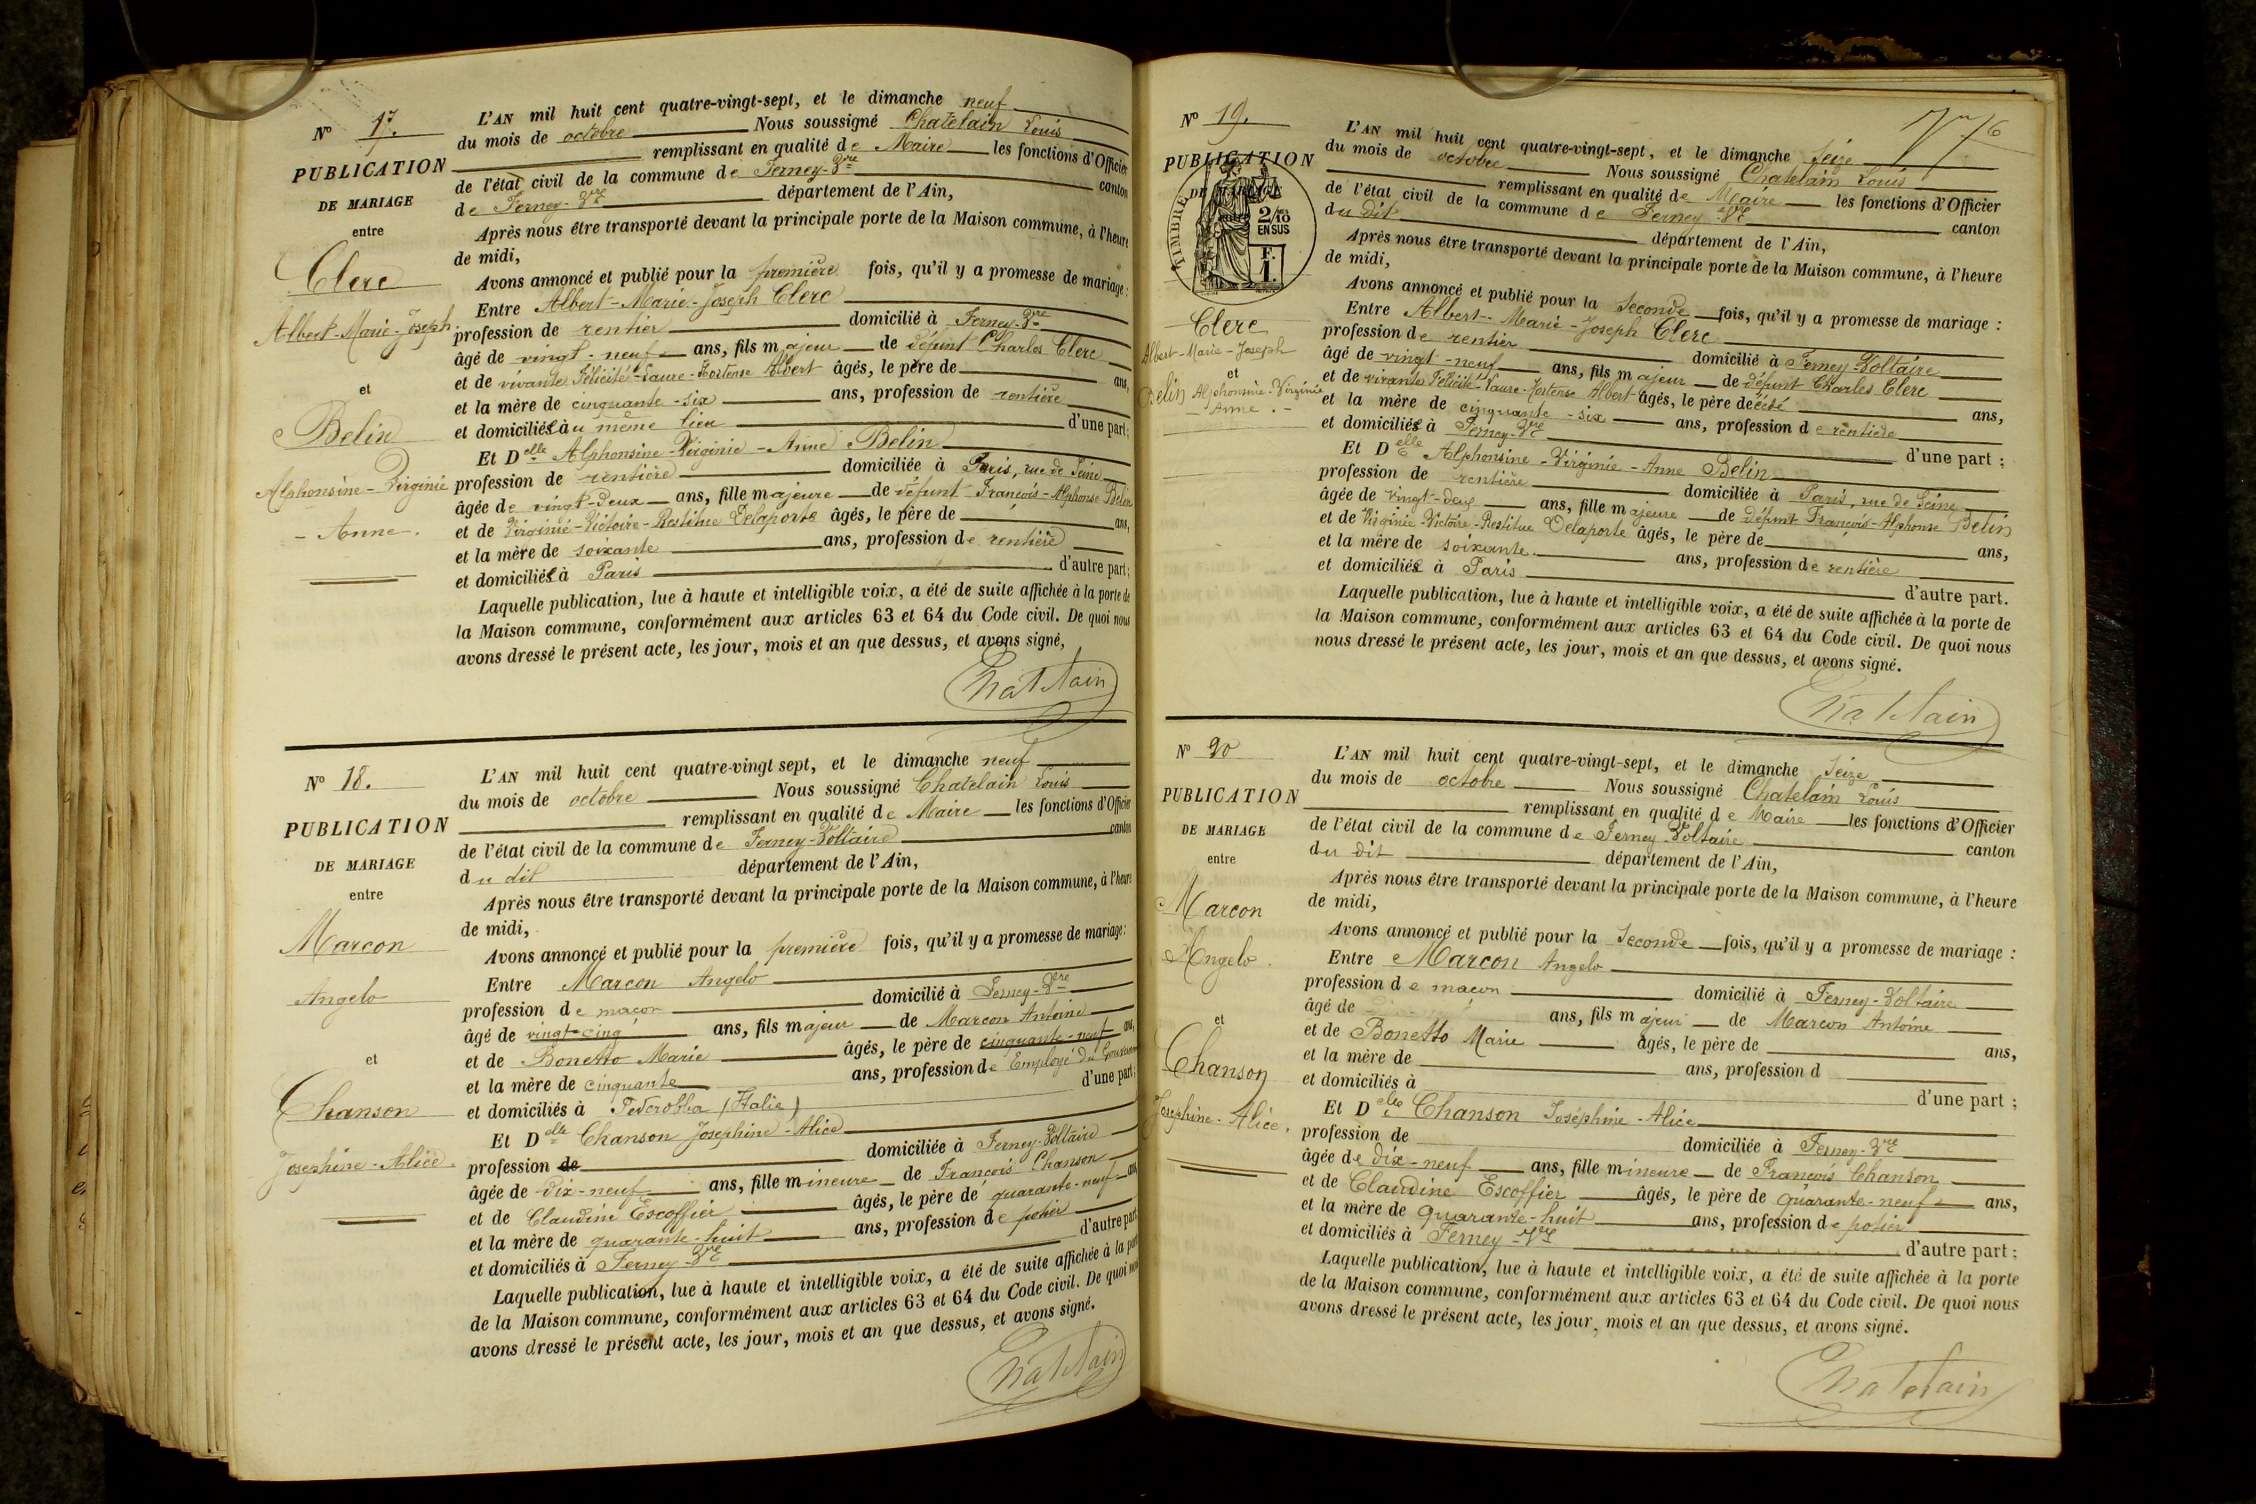 N° 17.
PUBLICATION
DE MARIAGE
entre
Clerc
Albert-Marie-Joseph
et
Belin
Alphonsine-Virginie
- Anne -
L'AN mil huit cent quatre-vingt-sept, et le dimanche neuf
du mois de octobre Nous soussigné Chatelain Louis
remplissant en qualité de Maire les fonctions d'Officier
de l'état civil de la commune de Ferney-Vre canton
de Ferney-Vre département de l'Ain,
Après nous être transporté devant la principale porte de la Maison commune, à l'heure
de midi,
Avons annoncé et publié pour la première fois, qu'il y a promesse de mariage :
Entre Albert-Marie-Joseph Clerc
profession de rentier domicilié à Ferney-Vre
âgé de vingt-neuf ans, fils majeur de défunt Charles Clerc
et de vivante Félicité-Laure-Hortense Albert âgés, le père de ans,
et la mère de cinquante-six ans, profession de rentière
et domiciliée au même lieu d'une part ;
Et Delle Alphonsine-Virginie-Anne Belin
profession de rentière domiciliée à Paris, rue de Seine
âgée de vingt-deux ans, fille majeure de défunt François-Alphonse Belin
et de Virginie-Victoire-Restitue Delaporte âgés, le père de ans,
et la mère de soixante ans, profession de rentière
et domiciliée à Paris d'autre part ;
Laquelle publication, lue à haute et intelligible voix, a été de suite affichée à la porte de
la Maison commune, conformément aux articles 63 et 64 du Code civil. De quoi nous
avons dressé le présent acte, les jour, mois et an que dessus, et avons signé,
Chatelain
N° 18.
PUBLICATION
DE MARIAGE
entre
Marcon
Angelo
et
Chanson
Josephine-Alice.
L'AN mil huit cent quatre-vingt sept, et le dimanche neuf
du mois de octobre Nous soussigné Chatelain Louis
remplissant en qualité de Maire les fonctions d'Officier
de l'état civil de la commune de Ferney-Voltaire canton
du dit département de l'Ain,
Après nous être transporté devant la principale porte de la Maison commune, à l'heure
de midi,
Avons annoncé et publié pour la première fois, qu'il y a promesse de mariage :
Entre Marcon Angelo
profession de maçon domicilié à Ferney-Vre
âgé de vingt-cinq ans, fils majeur de Marcon Antoine
et de Bonetto Marie âgés, le père de cinquante-neuf ans,
et la mère de cinquante ans, profession de Employé du
et domiciliés à Pederobba (Italie) d'une part ;
Et Delle Chanson Josephine-Alice
profession de domiciliée à Ferney-Voltaire
âgée de dix-neuf ans, fille mineure de François Chanson
et de Claudine Escoffier âgés, le père de quarante-neuf ans,
et la mère de quarante-huit ans, profession de potier
et domiciliés à Ferney-Vre d'autre part
Laquelle publication, lue à haute et intelligible voix, a été de suite affichée à la porte
de la Maison commune, conformément aux articles 63 et 64 du Code civil. De quoi nous
avons dressé le présent acte, les jour, mois et an que dessus, et avons signé.
Chatelain
N° 19.
PUBLICATION
DE MARIAGE
TIMBRE
2/10
EN SUS
F.
1.
Clerc
Albert-Marie-Joseph
et
Belin Alphonsine-Virginie
- Anne. -
76
L'AN mil huit cent quatre-vingt-sept, et le dimanche seize
du mois de octobre Nous soussigné Chatelain Louis
remplissant en qualité de Maire les fonctions d'Officier
de l'état civil de la commune de Ferney-Vre canton
du dit département de l'Ain,
Après nous être transporté devant la principale porte de la Maison commune, à l'heure
de midi,
Avons annoncé et publié pour la seconde fois, qu'il y a promesse de mariage :
Entre Albert-Marie-Joseph Clerc
profession de rentier domicilié à Ferney-Voltaire
âgé de vingt-neuf ans, fils majeur de défunt Charles Clerc
et de vivante Félicité-Laure-Hortense Albert âgés, le père décédé ans,
et la mère de cinquante-six ans, profession de rentière
et domiciliée à Ferney-Vre d'une part ;
Et Delle Alphonsine-Virginie-Anne Belin
profession de rentière domiciliée à Paris, rue de Seine
âgée de vingt-deux ans, fille majeure de défunt François-Alphonse Belin
et de Virginie-Victoire-Restitue Delaporte âgés, le père de ans,
et la mère de soixante ans, profession de rentière
et domiciliée à Paris d'autre part.
Laquelle publication, lue à haute et intelligible voix, a été de suite affichée à la porte de
la Maison commune, conformément aux articles 63 et 64 du Code civil. De quoi nous
nous dressé le présent acte, les jour, mois et an que dessus, et avons signé.
Chatelain
N° 20
PUBLICATION
DE MARIAGE
entre
Marcon
Angelo.
et
Chanson
Josephine-Alice.
L'AN mil huit cent quatre-vingt-sept, et le dimanche seize
du mois de octobre Nous soussigné Chatelain Louis
remplissant en qualité de Maire les fonctions d'Officier
de l'état civil de la commune de Ferney Voltaire canton
du dit département de l'Ain,
Après nous être transporté devant la principale porte de la Maison commune, à l'heure
de midi,
Avons annoncé et publié pour la seconde fois, qu'il y a promesse de mariage :
Entre Marcon Angelo
profession de maçon domicilié à Ferney-Voltaire
âgé de ans, fils majeur de Marcon Antoine
et de Bonetto Marie âgés, le père de ans,
et la mère de ans, profession d
et domiciliés à d'une part ;
Et Delle Chanson Joséphine-Alice
profession de domiciliée à Ferney-Vre
âgée de dix-neuf ans, fille mineure de François Chanson
et de Claudine Escoffier âgés, le père de quarante-neuf ans,
et la mère de quarante-huit ans, profession de potier
et domiciliés à Ferney-Vre d'autre part ;
Laquelle publication, lue à haute et intelligible voix, a été de suite affichée à la porte
de la Maison commune, conformément aux articles 63 et 64 du Code civil. De quoi nous
avons dressé le présent acte, les jour, mois et an que dessus, et avons signé.
Chatelain